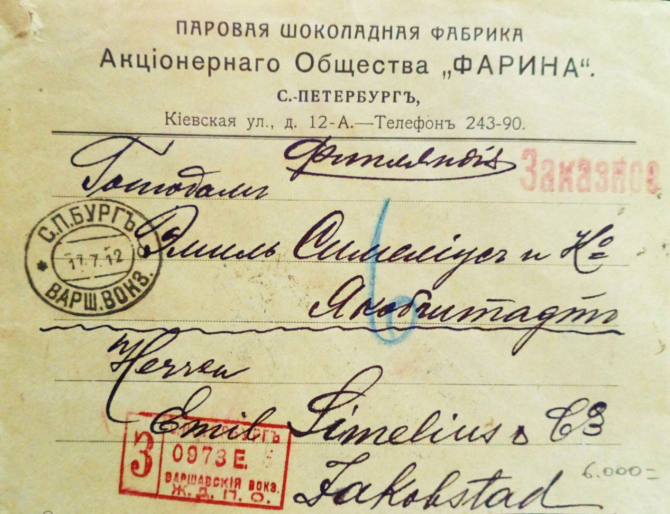 ПАРОВАЯ ШОКОЛАДНАЯ ФАБРИКА
Акціонернаго Общества „ФАРИНА“.
С.-ПЕТЕРБУРГЪ,
Кіевская ул., д. 12-А.—Телефонъ 243-90.
Финляндія
Заказное
Господамъ
С.П.БУРГЪ
17.7.12
ВАРШ. ВОКЗ.
Эмиль Симеліусъ и Ко
Якобштадтъ
6
Herren
Emil Simelius & Co
Jakobstad
З
0973 Е.
ВАРШАВСКІЯ ВОКЗ.
Ж. Д. П. О.
6.000=